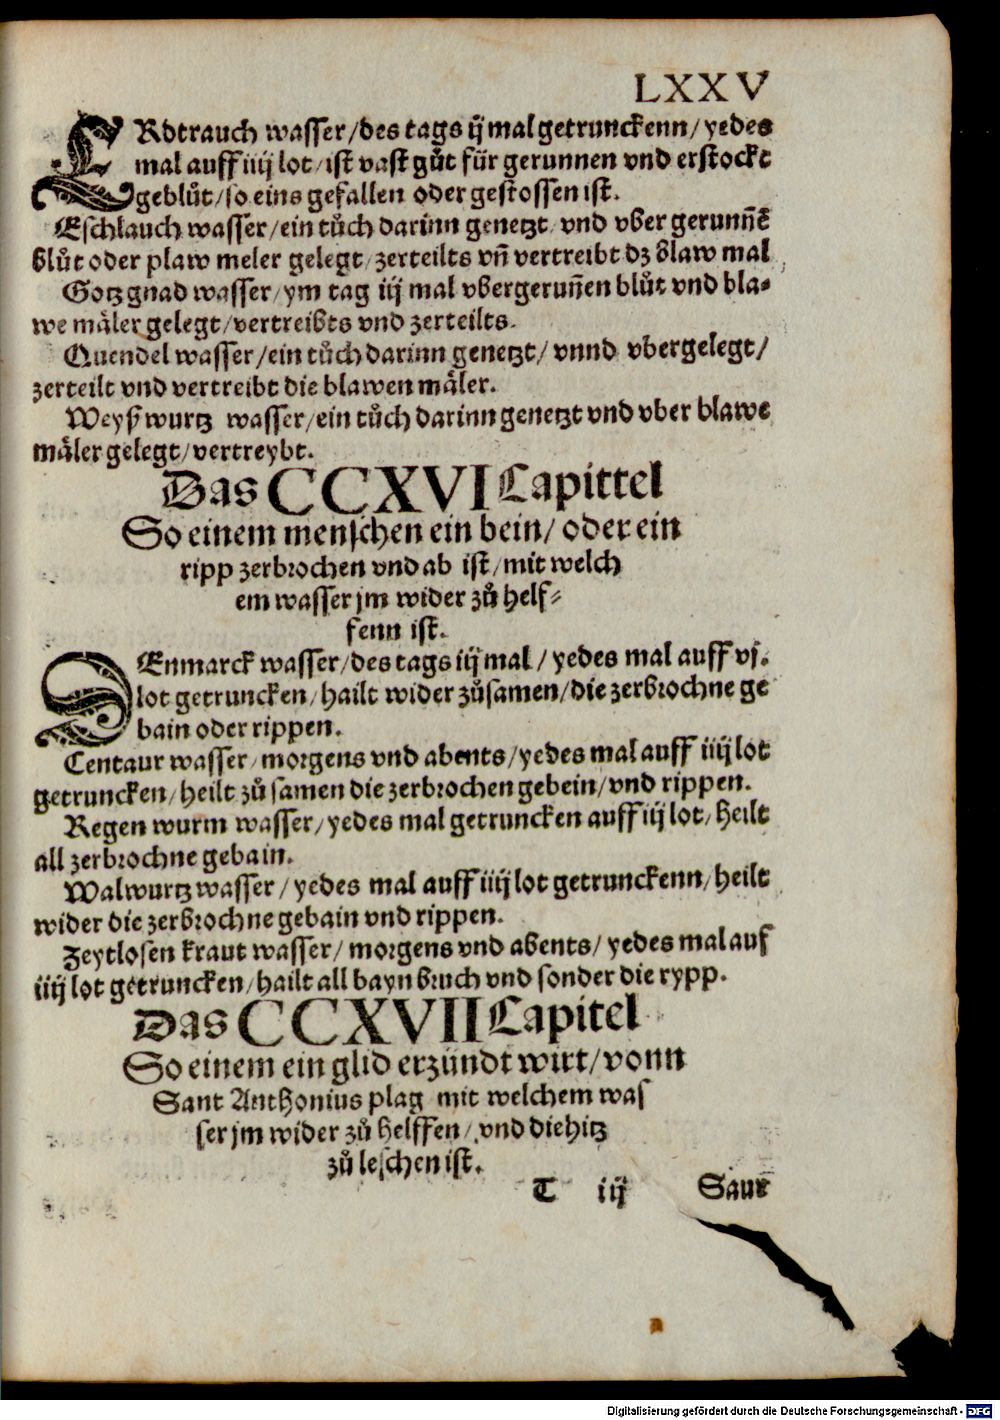 LXXV
ERdtrauch wasser/des tags ij mal getrunckenn/yedes
mal auff iiij lot/ist vast gůt für gerunnen vnd erstockt
geblůt/so eins gefallen oder gestossen ist.
Eschlauch wasser/ein tůch darinn genetzt/vnd vber gerunñẽ
blůt oder plaw meler gelegt/zerteilts vñ vertreibt dz blaw mal
Gotzgnad wasser/ym tag iij mal vbergeruñen blůt vnd bla-
we mäler gelegt/vertreibts vnd zerteilts.
Quendel wasser/ein tůch darinn genetzt/vnnd vbergelegt/
zerteilt vnd vertreibt die blawen mäler.
Weyß wurtz wasser/ein tůch darinn genetzt vnd vber blawe
mäler gelegt/vertreybt.
Das CCXVI Capittel
So einem menschen ein bein/oder ein
ripp zerbrochen vnd ab ist/mit welch
em wasser jm wider zů helf-
fenn ist.
SEnmarck wasser/des tags iij mal/yedes mal auff vj.
lot getruncken/hailt wider zůsamen/die zerbrochne ge
bain oder rippen.
Centaur wasser/morgens vnd abents/yedes mal auff iiij lot
getruncken/heilt zů samen die zerbrochen gebein/vnd rippen.
Regen wurm wasser/yedes mal getruncken auff iij lot/heilt
all zerbrochne gebain.
Walwurtz wasser/yedes mal auff iiij lot getrunckenn/heilt
wider die zerbrochne gebain vnd rippen.
Zeytlosen kraut wasser/morgens vnd abents/yedes mal auf
iiij lot getruncken/hailt all bayn bruch vnd sonder die rypp.
Das CCXVII Capitel
So einem ein glid erzündt wirt/vonn
Sant Anthonius plag mit welchem was
ser jm wider zů helffen/vnd die hitz
zů leschen ist.
T iij Saur
Digitalisierung gefördert durch die Deutsche Forschungsgemeinschaft - DFG